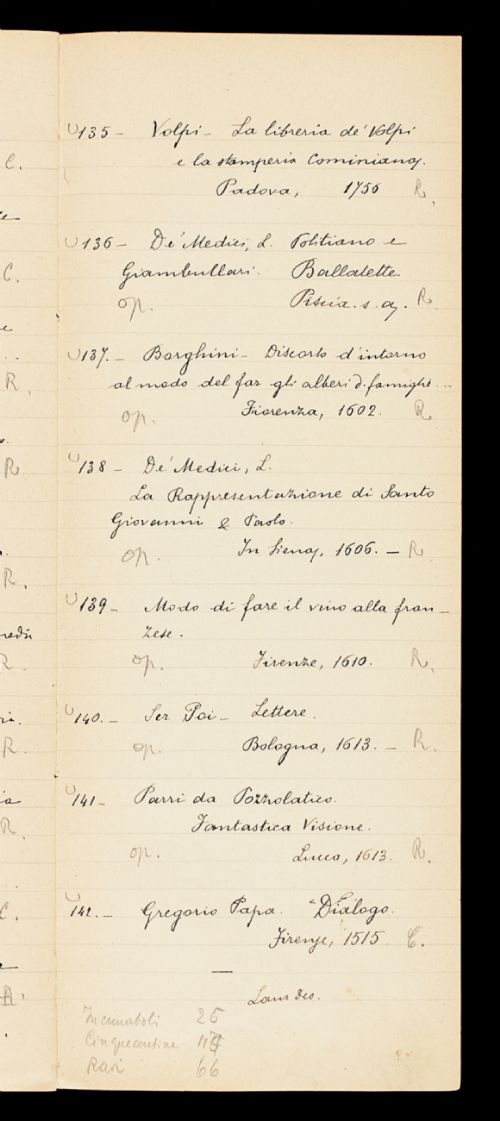 135 - Volpi - La libreria de' Volpi
e la stamperia Cominiana.
Padova, 1756 R.
136 - De' Medici, L. Politiano e
Giambullari. Ballatette.
op. Pescia. s. a. R.
137. - Borghini - Discorso d'intorno
al modo del far gli alberi d. famiglie...
op. Fiorenza, 1602. R.
138 - De' Medici, L.
La Rappresentazione di Santo
Giovanni e Paolo.
op. In Siena, 1606. - R
139 - Modo di fare il vino alla fran-
zese.
op. Firenze, 1610. R.
140. - Ser Poi - Lettere.
op. Bologna, 1613. - R.
141 - Parri da Pozzolatico.
Fantastica Visione.
op. Lucca, 1613. R.
142. - Gregorio Papa. Dialogo.
Firenze, 1515. C.
Laus Deo.
Incunaboli 25
Cinquecentine
Rari 66